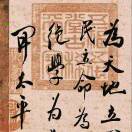 為天地立
民立命為
絕學為
開太平